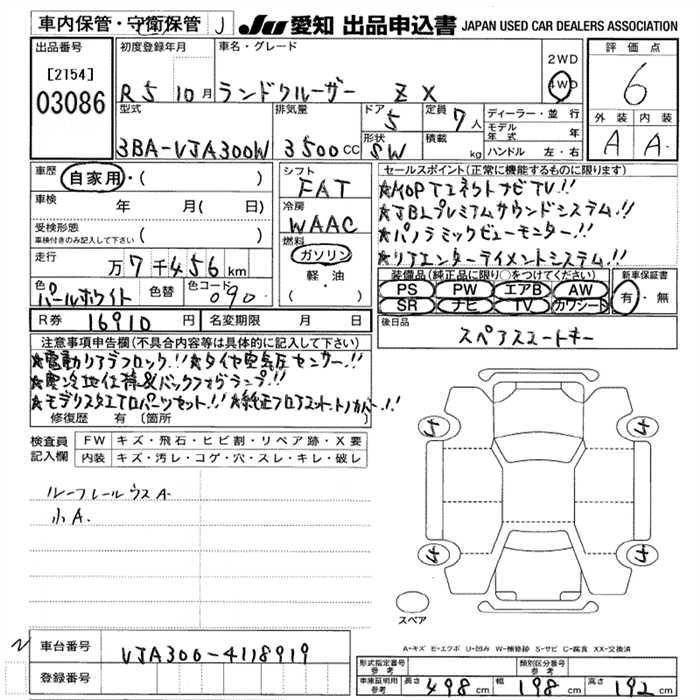 車内保管・守衛保管 J JU 愛知 出品申込書 JAPAN USED CAR DEALERS ASSOCIATION
出品番号 初度登録年月 車名・グレード 2WD 評価点
[2154] R5 10月 ランドクルーザー ZX 4WD 6
03086 型式 排気量 ドア 定員 ディーラー・並行 外装 内装
3BA-VJA300W 3500cc 5 7人 モデル年式 年 A A
形状 SW 積載 kg ハンドル 左・右
車歴 自家用・( ) シフト FAT セールスポイント(正常に機能するものに限ります)
車検 年 月( 日) 冷房 WAAC ★MOP Tコネクトナビ TV!!
受検形態 ★JBLプレミアムサウンドシステム!!
車検付きのみ記入して下さい ( ) 燃料 ガソリン ★パノラミックビューモニター!!
走行 万7千456km 軽・油 ★リアエンターテイメントシステム!!
色 パールホワイト 色替 色コード 090 ( ) 装備品(純正品に限り○をつけてください) 新車保証書
PS PW エアB AW 有・無
SR ナビ TV カワシート
R券 16910円 名変期限 月 日 後日品 スペアスマートキー
注意事項申告欄(不具合内容等は具体的に記入して下さい)
★電動リアデフロック!!★タイヤ空気圧センサー!!
★寒冷地仕様&バックフォグランプ!!
★モデリスタエアロパーツセット!!★純正フロアマット、トノカバー!!
修復歴 有(箇所 )
検査員 FW キズ・飛石・ヒビ割・リペア跡・X要
記入欄 内装 キズ・汚レ・コゲ・穴・スレ・キレ・破レ
ルーフレールウスA
小A.
スペア
A-キズ E-エクボ U-凹み W-補修跡 S-サビ C-腐食 XX-交換済
車台番号 VJA300-4118919
登録番号
形式指定番号 参考 類別区分番号 参考
車庫証明用 参考 長さ 498cm 幅 198cm 高さ 192cm